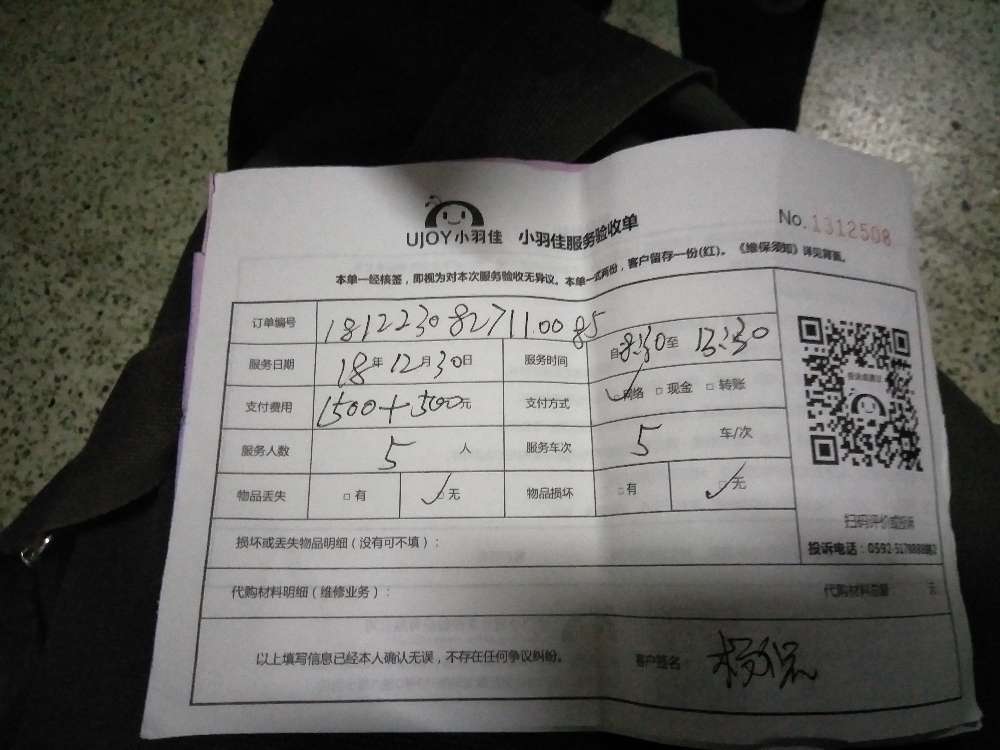 UJOY小羽佳 小羽佳服务验收单 No.1312508
本单一经核签，即视为对本次服务验收无异议。本单一式两份，客户留存一份(红)。《维保须知》详见背面。
订单编号 181223082711.0085
服务日期 18年12月30日 服务时间 自8:30至13:30
支付费用 1500+500元 支付方式 ✓网络 □现金 □转账
服务人数 5 人 服务车次 5 车/次
物品丢失 □有 ✓□无 物品损坏 □有 ✓□无
扫码评价或投诉
损坏或丢失物品明细（没有可不填）：
投诉电话：0592-
代购材料明细（维修业务）： 代购材料总量： 元
以上填写信息已经本人确认无误，不存在任何争议纠纷。 客户签名：